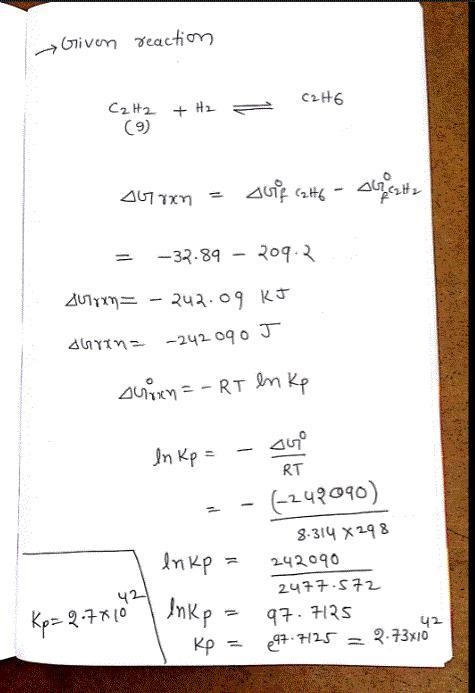 → Given reaction
C2H2 + H2 ⇌ C2H6
(g)
ΔGrxn = ΔG°f C2H6 - ΔG°f C2H2
= -32.89 - 209.2
ΔGrxn = - 242.09 KJ
ΔGrxn = -242090 J
ΔG°rxn = - RT ln Kp
ln Kp = - ΔG°
RT
= - (-242090)
8.314 X 298
ln Kp = 242090
2477.572
ln Kp = 97.7125
Kp = e^97.7125 = 2.73x10^42
Kp = 2.7x10^42